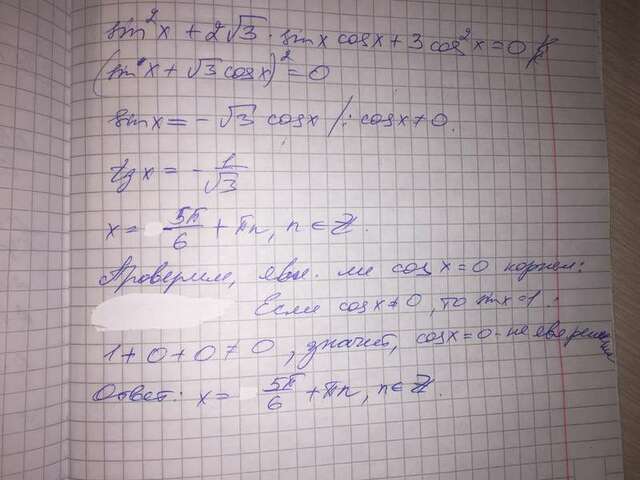 sin²x + 2√3 · sinx cosx + 3 cos²x = 0
(sin x + √3 cosx)² = 0
sinx = - √3 cosx /: cosx ≠ 0.
tgx = - 1/√3
x = 5π/6 + πn, n ∈ Z.
Проверим, явл. ли cosx = 0 корнем:
Если cosx ≠ 0, то sinx = 1.
1 + 0 + 0 ≠ 0, значит, cosx = 0 - не явл решения
Ответ: x = 5π/6 + πn, n ∈ Z.